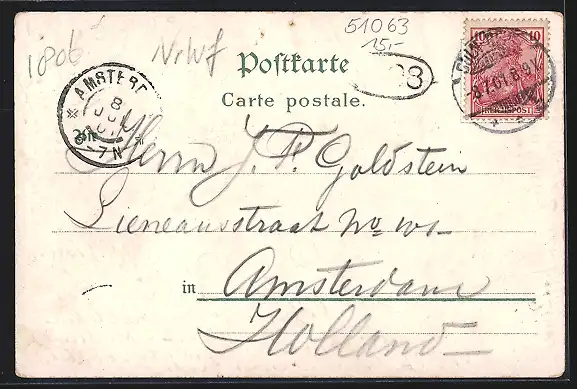 51063
1806 NrWf 15,-
Postkarte
Carte postale.
10
REICHSPOST
7.01. 8-9
AMSTERD
8
JUL
01
6-7N
Herrn J. F. Goldstein
straat No
in Amsterdam
Holland